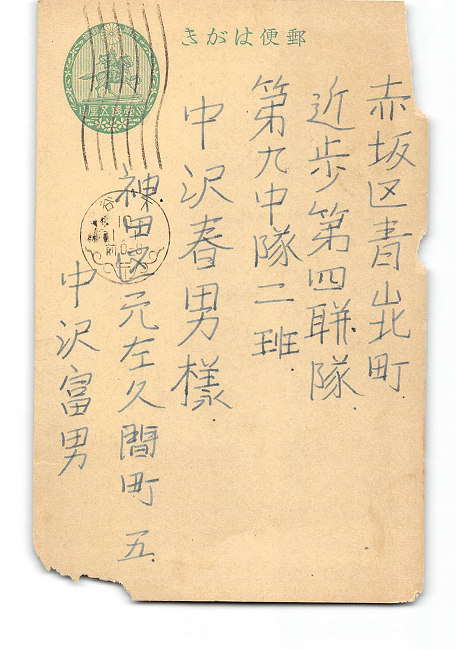 きがは便郵
赤坂区青山北町
近歩第四聯隊
第九中隊二班
中沢春男様
神田区元左久間町五
中沢富男
谷
10